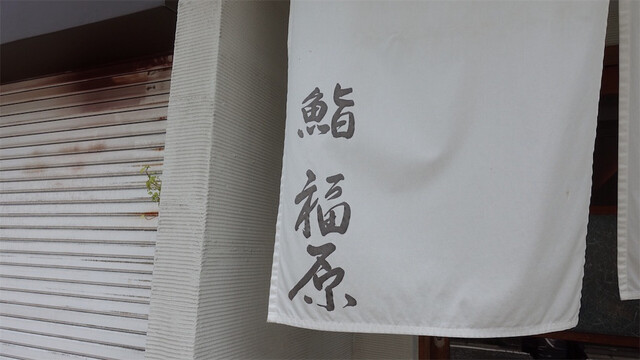 鮨 福原